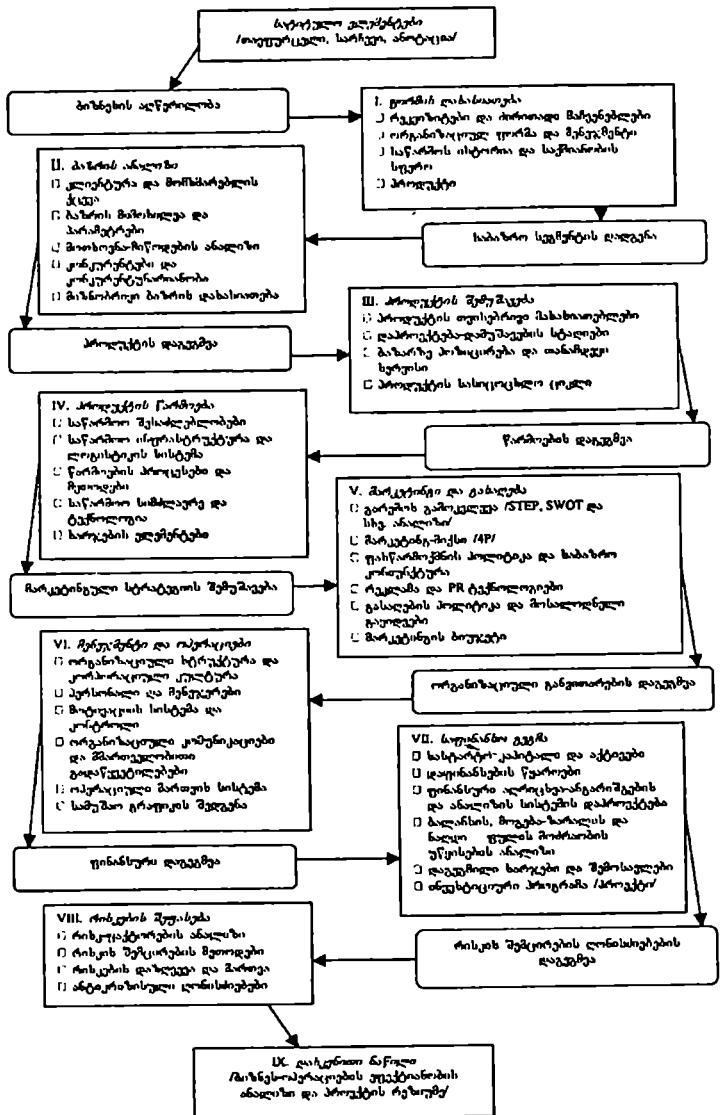 სატიტულო ელემენტები
/თავფურცელი, სარჩევი, ანოტაცია/
ბიზნესის აღწერილობა
I. ფირმის დახასიათება
□ რეკვიზიტები და ძირითადი მაჩვენებლები
□ ორგანიზაციულ ფორმა და მენეჯმენტი
□ საწარმოს ისტორია და საქმიანობის
სფერო
□ პროდუქტი
II. ბაზრის ანალიზი
□ კლიენტურა და მომხმარებლის
ქცევა
□ ბაზრის მიმოხილვა და
პარამეტრები
□ მოთხოვნა-მიწოდების ანალიზი
□ კონკურენტები და
კონკურენტუნარიანობა
□ მიზნობრივი ბაზრის დახასიათება
საბაზრო სეგმენტის დადგენა
პროდუქტის დაგეგმვა
III. პროდუქტის შემუშავება
□ პროდუქტის თვისებრივი მახასიათებლები
□ დაპროექტება-დამუშავების სტადიები
□ ბაზარზე პოზიცირება და თანამდევი
სერვისი
□ პროდუქტის სასიცოცხლო ციკლი
IV. პროდუქტის წარმოება
□ საწარმოო შესაძლებლობები
□ საწარმოო ინფრასტრუქტურა და
ლოგისტიკის სისტემა
□ წარმოების პროცესები და
მეთოდები
□ საწარმოო სიმძლავრე და
ტექნოლოგია
□ ხარჯების ელემენტები
წარმოების დაგეგმვა
V. მარკეტინგი და გასაღება
□ გარემოს გამოკვლევა /STEP, SWOT და
სხვ. ანალიზი/
□ მარკეტინგ-მიქსი /4P/
□ ფასწარმოქმნის პოლიტიკა და საბაზრო
კონიუნქტურა
□ რეკლამა და PR ტექნოლოგიები
□ გასაღების პოლიტიკა და მოსალოდნელი
გაყიდვები
□ მარკეტინგის ბიუჯეტი
მარკეტინგული სტრატეგიის შემუშავება
VI. მენეჯმენტი და ოპერაციები
□ ორგანიზაციული სტრუქტურა და
კორპორაციული კულტურა
□ პერსონალი და მენეჯერები
□ მოტივაციის სისტემა და
კონტროლი
□ ორგანიზაციული კომუნიკაციები
და მმართველობითი
გადაწყვეტილებები
□ ოპერაციული მართვის სისტემა
□ სამუშაო გრაფიკის შედგენა
ორგანიზაციული განვითარების დაგეგმვა
VII. საფინანსო გეგმა
□ სასტარტო-კაპიტალი და აქტივები
□ დაფინანსების წყაროები
□ ფინანსური აღრიცხვა-ანგარიშგების
და ანალიზის სისტემის დაპროექტება
□ ბალანსის, მოგება-ზარალის და
ნაღდი ფულის მოძრაობის
უწყისების ანალიზი
□ დაგეგმილი ხარჯები და შემოსავლები
□ ინვესტიციური პროგრამა /პროექტი/
ფინანსური დაგეგმვა
VIII. რისკების შეფასება
□ რისკ-ფაქტორების ანალიზი
□ რისკის შემცირების მეთოდები
□ რისკების დაზღვევა და მართვა
□ ანტიკრიზისული ღონისძიებები
რისკის შემცირების ღონისძიებების
დაგეგმვა
IX. დასკვნითი ნაწილი
/ბიზნეს-ოპერაციების ეფექტიანობის
ანალიზი და პროექტის რეზიუმე/